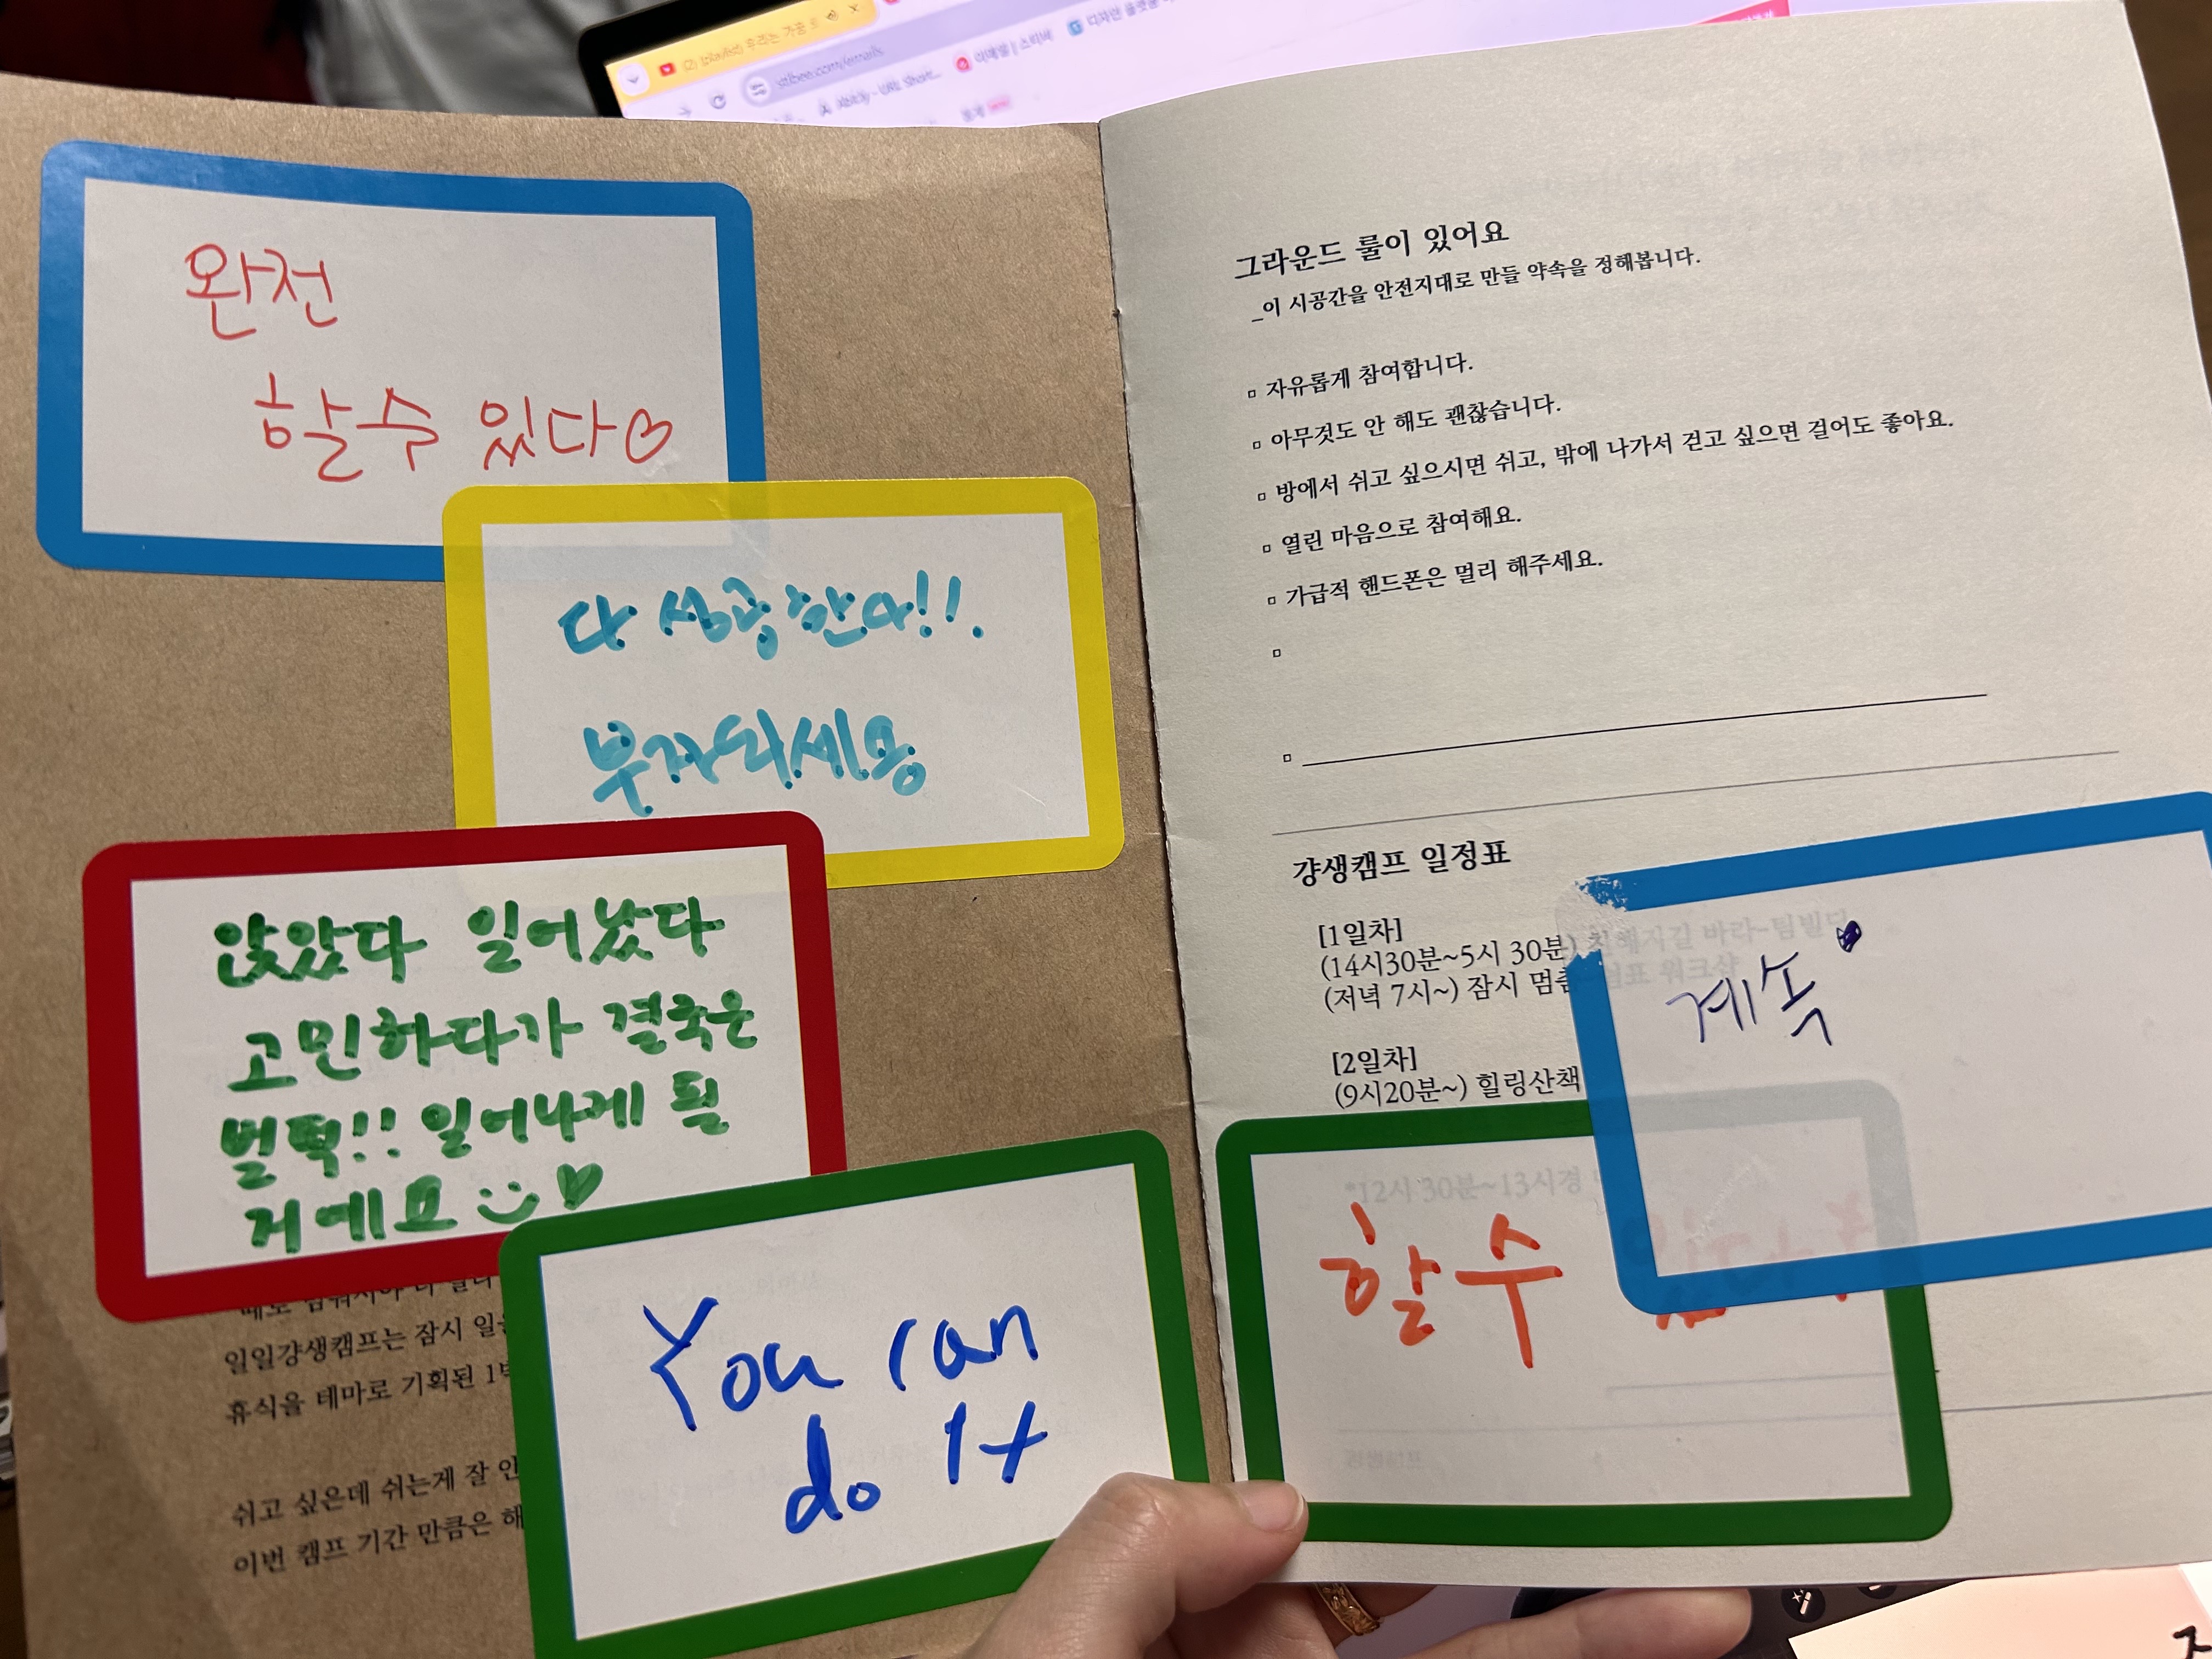 stibee.com/emails
완전
할수 있다
다 성공한다!!
부자되세용
앉았다 일어났다
고민하다가 결국은
벌떡!! 일어나게 될
거예요
일일걍생캠프는 잠시
휴식을 테마로 기획된
쉬고 싶은데 쉬는게 잘
이번 캠프 기간 만큼은
You can
do It
그라운드 룰이 있어요
_이 시공간을 안전지대로 만들 약속을 정해봅니다.
▫ 자유롭게 참여합니다.
▫ 아무것도 안 해도 괜찮습니다.
▫ 방에서 쉬고 싶으시면 쉬고, 밖에 나가서 걷고 싶으면 걸어도 좋아요.
▫ 열린 마음으로 참여해요.
▫ 가급적 핸드폰은 멀리 해주세요.
걍생캠프 일정표
[1일차]
(14시30분~5시 30분) 친해지길 바라-팀빌딩
(저녁 7시~) 잠시 멈춤 쉼표 워크샵
[2일차]
(9시20분~) 힐링산책
*12시 30분~13시경
계속
할수 있다